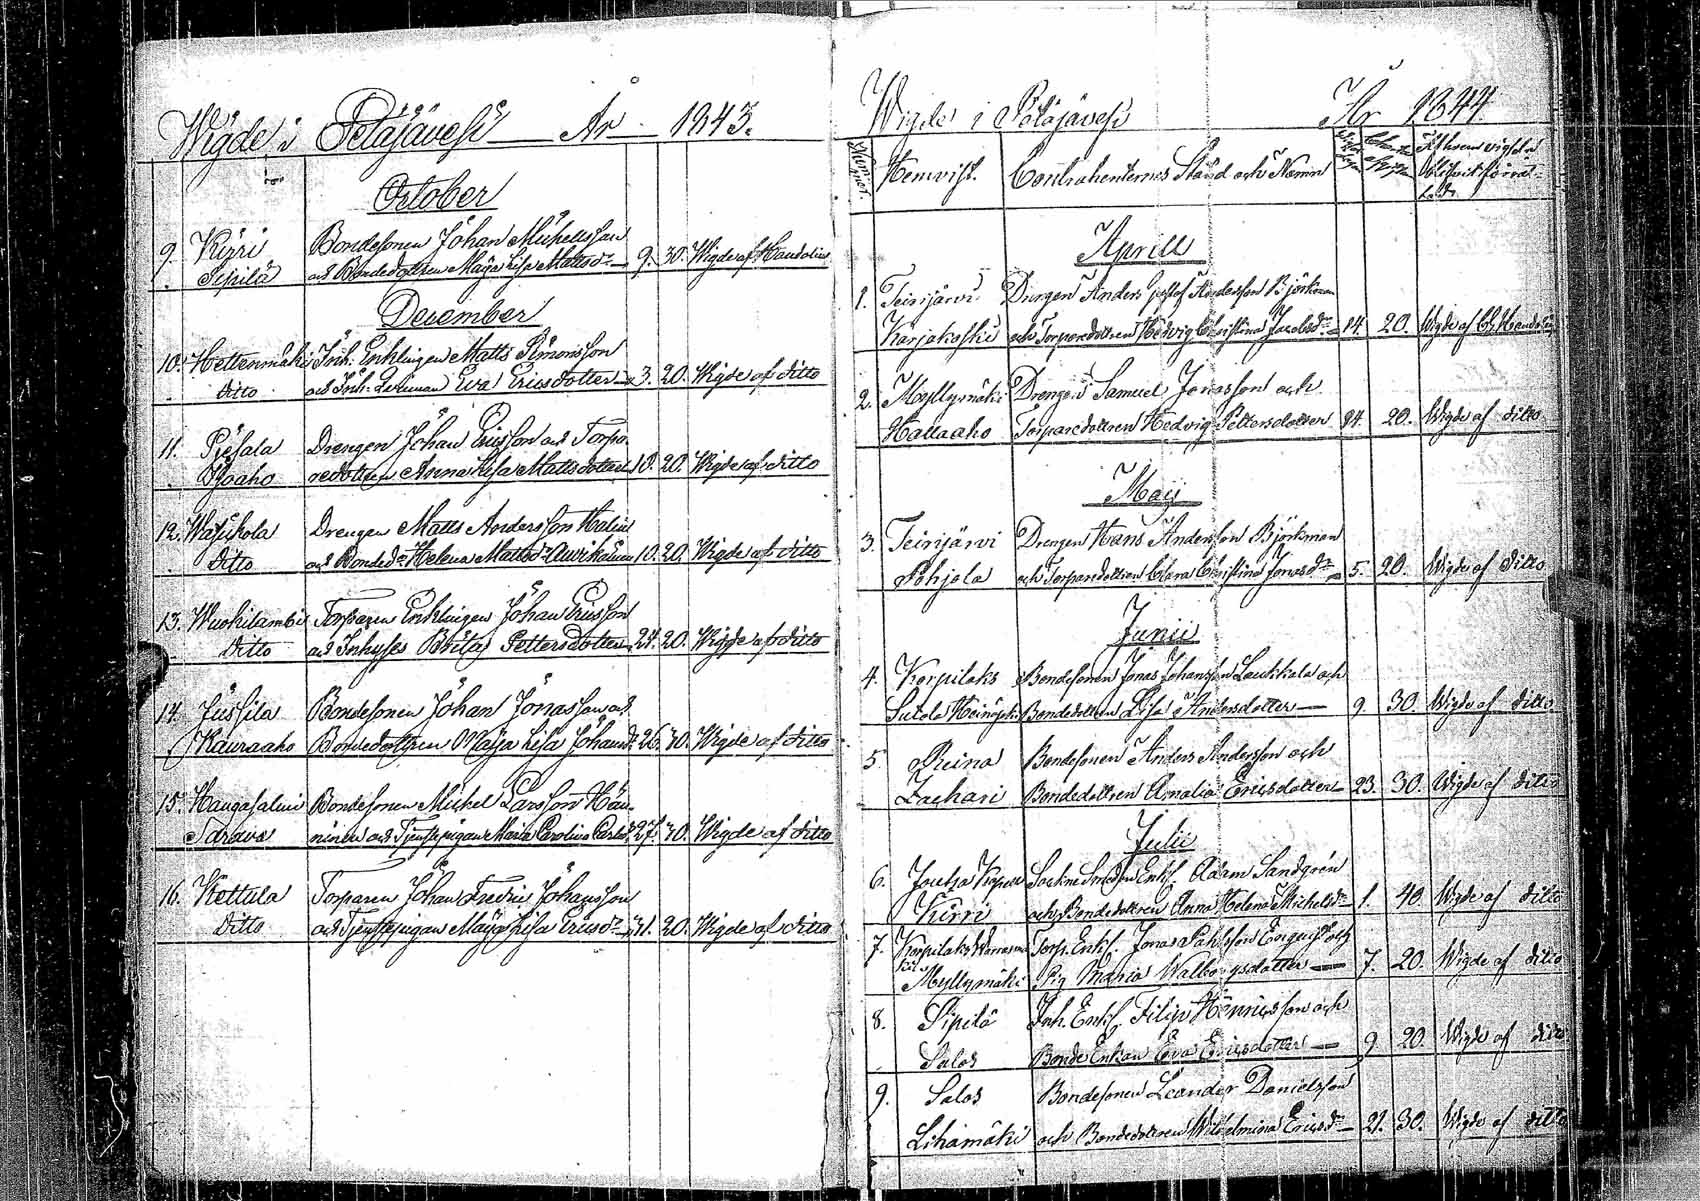 Wigde i Petäjävesi År 1843.
October
9. Kyri Bondesonen Johan Michellsson
Sipilä och Bondedottren Maija Lisa Mattsdr 9. 30. Wigde af Handolin
December
10. Hettenmäki Inh. Enklingen Matts Simonsson
ditto och Inh. Qvinnan Eva Ericsdotter 3. 20. Wigde af ditto
11. Drengen Johan Ericsson och Torpa-
redottren Anna Lisa Mattsdotter 10. 20. Wigde af ditto
12. Drengen Matts Andersson Malin
ditto och Bondedr Helena Mattsdr 10. 20. Wigde af ditto
13. Wuohilambi Torparen Enklingen Johan Ericsson
ditto och Inhyses Pettersdotter 24. 20. Wigde af ditto
14. Jussila Bondesonen Johan Jonasson och
Kauraaho Bondedottren Maija Lisa Johansdr 26. 30. Wigde af ditto
15. Haugasalmi Bondesonen Michel Larsson Hän-
Sarava ninen och Tjenstepigan Maria Carolina Carlsdr 27. 30. Wigde af ditto
16. Kettula Torparen Johan Fredric Johansson
ditto och Tjenstepigan Maija Lisa Ericsdr 31. 20. Wigde af ditto
Wigde i Petäjävesi År 1844.
Nummer Hemvist. Contrahenternes Stånd och Namn
Aprill
1. Teirijärvi Drengen Anders Gustaf Andersson Björkman
Karjakoski och Torparedottren Hedvig Christina Jacobsdr 14. 20. Wigde af Handolin
2. Myllymäki Drengen Samuel Jonasson och
Hallaaho Torparedottren Hedvig Pettersdotter 24. 20. Wigde af ditto
Maij
3. Teirijärvi Drengen Hans Andersson Björkman
Pohjola och Torparedottren Clara Christina Jonasdr 5. 20. Wigde af ditto
Junii
4. Korpilaks Bondesonen Jonas Johansson Laukkala och
Bondedottren Lisa Andersdotter 9. 30. Wigde af ditto
5. Bondesonen Anders Andersson och
Zachari Bondedottren Amalia Ericsdotter 23. 30. Wigde af ditto
Julii
6. Joutza Sockne Smeden Enkl. Adam Sandgrén
Kirri och Bondedottren Anna Helena Michelsdr 1. 40. Wigde af ditto
7. Korpilaks Torp. Enkl. Jonas Engquist och
Myllymäki Pig. Maria Walborgsdotter 7. 20. Wigde af ditto
8. Sipilä Inh. Enkl. Filip Henricsson och
Salos Bonde Enkan Eva Ericsdotter 9 20. Wigde af ditto
9. Salos Bondesonen Leander Danielsson
Lihamäki och Bondedottren Wilhelmina Ericsdr 21. 30. Wigde af ditto